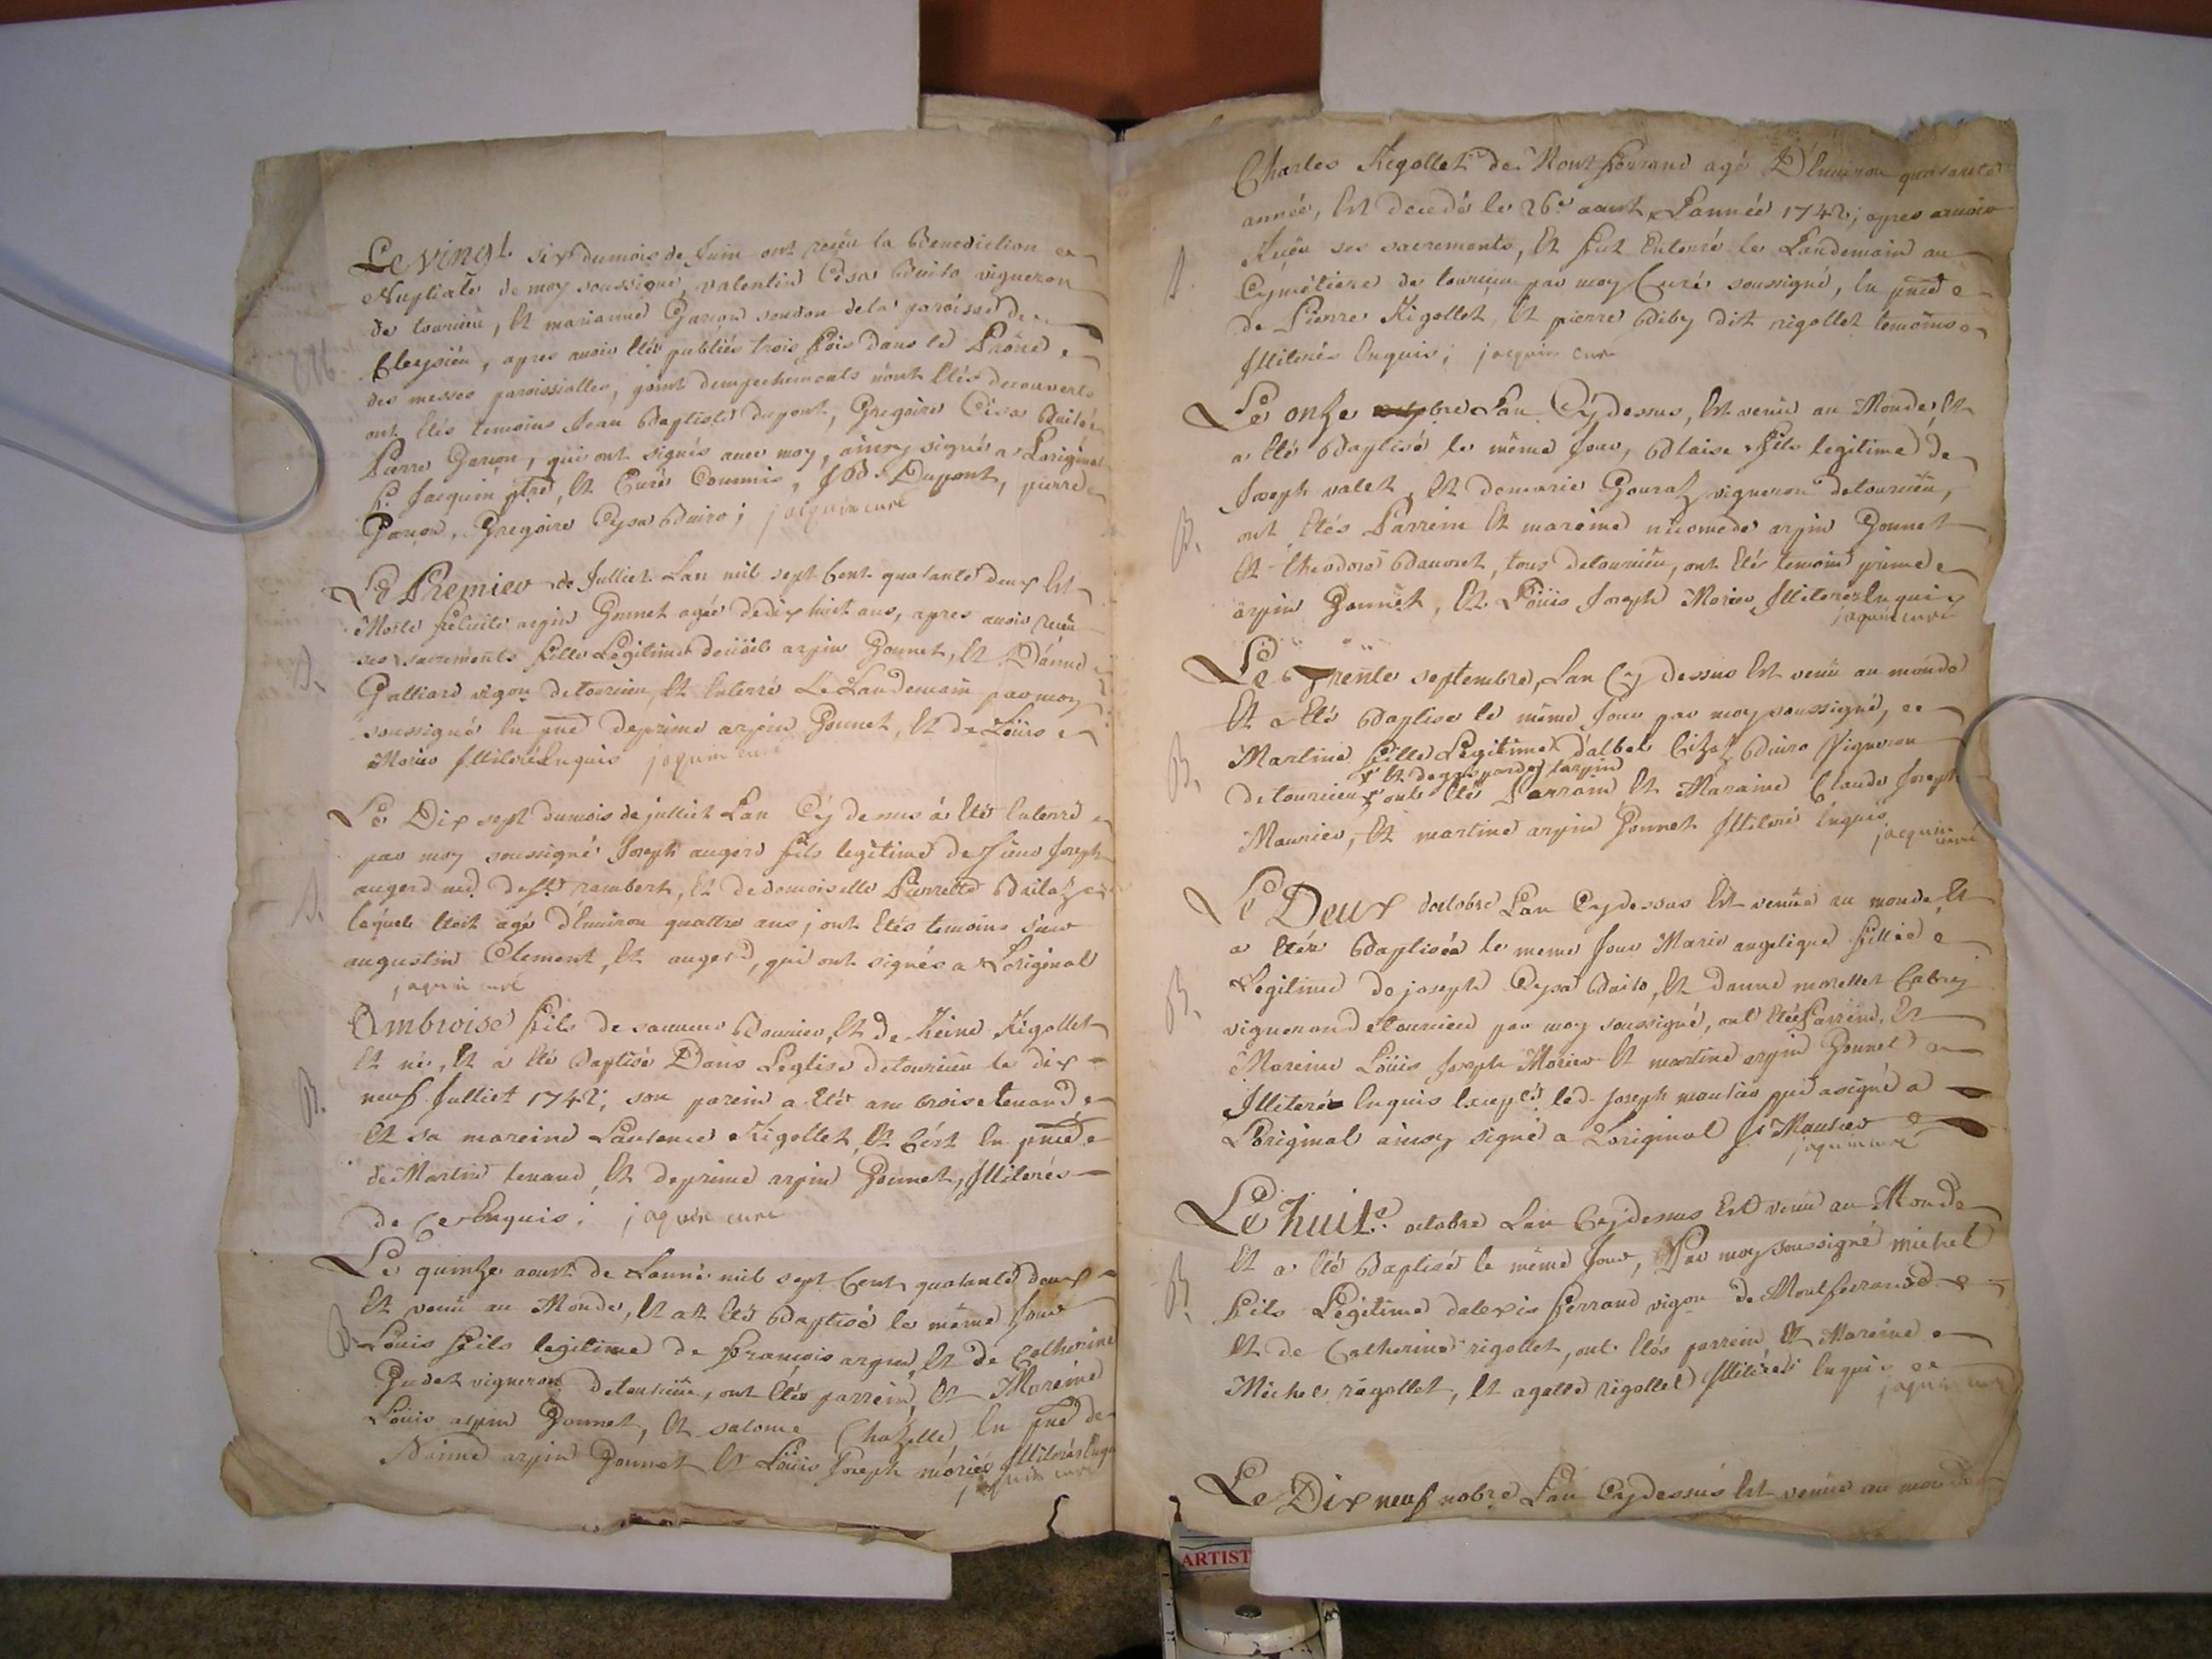 Le vingt six du mois de Juin ont reçeu la Benediction
Nuptiale de moy soussigné, valentin Cisa Buiro vigneron
de tourieu, Et marianne Garion de la paroisse de
Cleyzieu, apres avoir Etés publiés trois fois dans le Prône
des messes paroissialles, point d'empechements n'ont Etés decouverts
ont Etés temoins Jean Baptiste dupont, Gregoire Cisa Buiro
Pierre Garion, qui ont signés avec moy, ainsy signés a Loriginal
Jacquin ptre, Et Curé Commis, J B Dupont, pierre
Garion, Gregoire Cysa Buiro; jacquin curé
Le Premier de Julliet Lan mil sept Cent quarante deux Est
Morte felicite arpin Gonnet agée de dix huit ans, apres avoir reçeu
ses sacrements fille Legitime arpin Gonnet, Et D'anne
Galliard vigon de tourieu, Et Enterré Le Landemain par moy
soussigné En pnce de prime arpin Gonnet, Et de Loüis
Morier Illiteré Enquis jaquin curé
Le Dix sept du mois de julliet Lan Cy dessus á Eté Enterré
par moy soussigné Joseph augerd fils legitime de sieur Joseph
augerd de St rambert, Et de demoiselle Pierrette
lequel Etoit agé d'Environ quattre ans; ont Etés temoins sieur
augustin Clement, Et augerd, qui ont signés a Loriginal
jaquin curé
Ambroise fils de Et de Reine Rigollet
Et né, Et a Eté Baptisé Dans L'eglise de tourieu le dix
neuf Julliet 1742; son parein a Eté ambroise tenand
Et sa mareine Laurence Rigollet, Et C'est En pnce
de Martin tenand, Et de prime arpin Gonnet, Illiterés
de ce Enquis; jaquin curé
Le quinze aoust de Lanné mil sept Cent quarante deux
Et venü au Monde, Et at Eté Baptisé le même Jour
Loüis fils legitime de François arpin, Et de Catherine
Gudet vigneron de tourieu, ont Etés parrein, Et Mareine
Loüis arpin Gonnet, Et salome Chazelle En pnce de
arpin Gonnet Et Loüis Joseph moriér Illiterés Enquis
jaquin curé
Charles Rigollet de Mont ferrand agé D'Environ quarante
année, Est decedé le 26e aoust, Lannée 1742; apres avoir
Reçeu ses sacrements, Et fut Enterré le Landemain au
Cymétiere de tourieu par moy Curé soussigné, En pnce
de Pierre Rigollet, Et pierre Biby dit rigollet temoins
Illiterés Enquis; jacquin curé
Le onze bre Lan Cy dessus, Est venü au Monde, Et
a Eté Baptisé le même Jour, Blaise fils legitime de
Joseph valet, Et de marie Gouraz vigneron de tourieu,
ont Etés Parrein Et mareine nicomede arpin Gonnet
Et theodore Bauvret, tous de tourieu, ont Etés temoins prime
arpin Gonnet, Et Loüis Joseph Morier Illiterés Enquis
jaquin curé
Le Trente septembre, Lan Cy dessus Est venü au monde
Et a Eté Baptisé le même Jour par moy soussigné,
Martine fille Legitime d'albel Cizaz Buiro Vigneron
Et de arpin
de tourieu ont Eté Parrain Et Maraine Claude Joseph
Maurier, Et martine arpin Gonnet Illiteré Enquis
jacquin curé
Le Deux doctobre Lan Cy dessus Est venüe au monde, Et
a Etée Baptisée le meme Jour Marie angelique fillie
Legitime de joseph Cysa Buiro, Et d'anne morellet Cabry
vigneron de tourieu par moy soussigné, ont Etés Parrein, Et
Mareine Loüis Joseph Morier Et martine arpin Gonnet
Illiteré Enquis Excepté led. Joseph mourier qui a signé a
Loriginal ainsy signé a Loriginal Js Maurier
jaquin curé
Le huite octobre Lan Cy dessus Est venü au Monde
Et a Eté Baptisé le même Jour, Par moy soussigné michel
fils Legitime d'alexis ferrand vigon de Montferrand
Et de Catherine rigollet, ont Etés parrein Et Mareine
Michel rigollet, Et agathe rigollet Illiterés Enquis
jaquin curé
Le Dix neuf nobre Lan Cy dessus Est venüe au monde
ARTIST